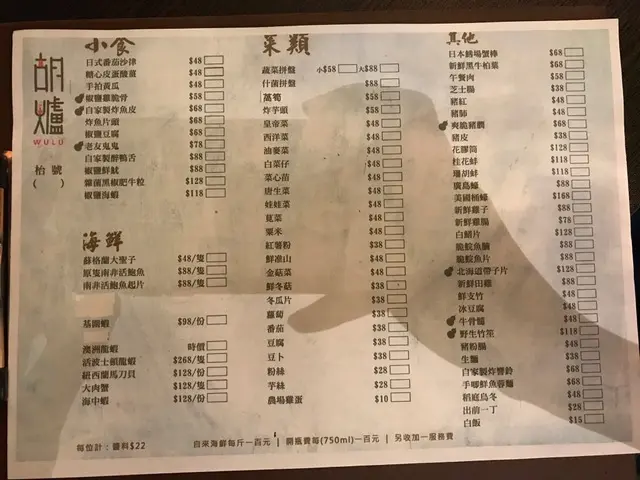 胡爐
WULU
枱號
( )
小食
日式番茄沙律 $48
糖心皮蛋酸薑 $48
手拍黃瓜 $48
椒鹽雞脆骨 $58
自家製炸魚皮 $68
炸魚片頭 $68
椒鹽豆腐 $68
老友鬼鬼 $78
自家製醉鴨舌 $88
椒鹽鮮魷 $88
雜菌黑椒肥牛粒 $128
椒鹽海蝦 $118
海鮮
蘇格蘭大聖子 $48/隻
原隻南非活鮑魚 $88/隻
南非活鮑魚起片 $88/隻
基圍蝦 $98/份
澳洲龍蝦 時價
活波士頓龍蝦 $268/隻
紐西蘭馬刀貝 $128/份
大肉蟹 $128/隻
海中蝦 $128/份
菜類
蔬菜拼盤 小$58 大$88
什菌拼盤 $88
萵筍 $58
炸芋頭 $58
皇帝菜 $48
西洋菜 $48
油麥菜 $48
白菜仔 $48
菜心苗 $48
唐生菜 $48
娃娃菜 $48
莧菜 $48
粟米 $48
紅薯粉 $38
鮮淮山 $48
金菇菜 $48
鮮冬菇 $38
冬瓜片 $38
蘿蔔 $38
番茄 $38
豆腐 $38
豆卜 $38
粉絲 $28
芋絲 $28
農場雞蛋 $10
其他
日本鱈場蟹棒 $68
新鮮黑牛柏葉 $68
午餐肉 $58
芝士腸 $38
豬紅 $48
豬膶 $48
爽脆豬膶 $68
豬皮 $38
花膠筒 $128
桂花蚌 $118
珊瑚蚌 $118
廣島蠔 $88
美國桶蠔 $168
新鮮雞子 $88
新鮮雞腸 $78
白鱔片 $128
脆鯇魚腩 $88
脆鯇魚片 $88
北海道帶子片 $128
新鮮田雞 $88
鮮支竹 $48
冰豆腐 $48
牛骨髓 $48
野生竹笙 $118
豬粉腸 $48
生麵 $38
自家製炸響鈴 $68
手唧鮮魚蓉麵 $68
稻庭烏冬 $48
出前一丁 $28
白飯 $15
每位計：醬料$22 自來海鮮每斤一百元 | 開瓶費每(750ml)一百元 | 另收加一服務費